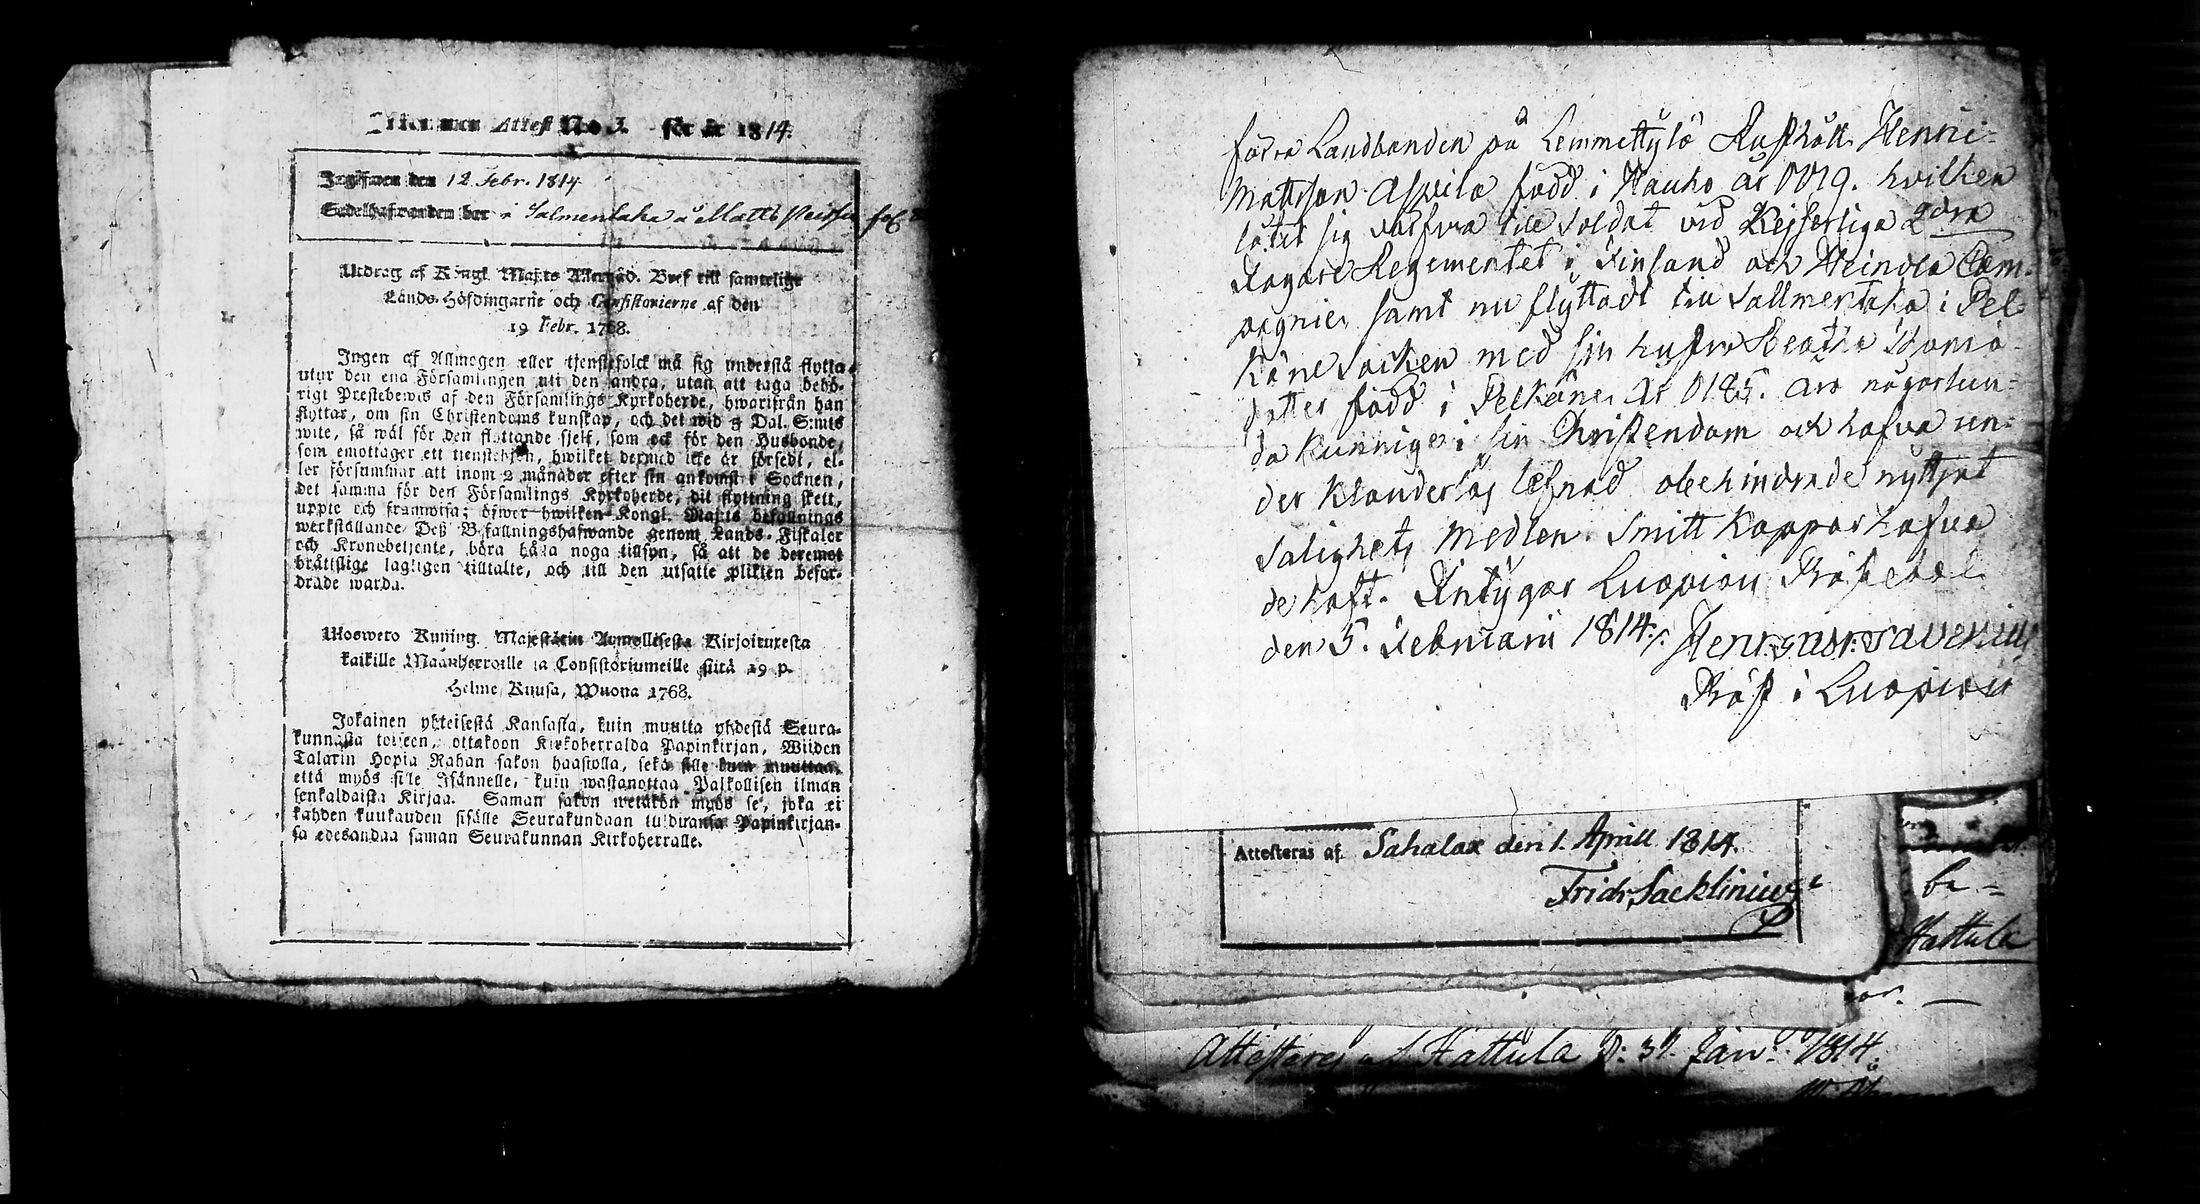 Attest No 3. för år 1814.
Ingifwen den 12 Febr. 1814
Sedelhafwanden bor i Salmentaka å Matti
Utdrag af Kongl. Maj:ts Allernåd. Bref till samtelige
Lands-Höfdingarne och Consistorierne af den
19 Febr. 1768.
Ingen af Allmogen eller tjenstefolck må sig understå flytta
utur den ena Församlingen uti den andra, utan att taga behö-
rigt Prestebewis af den Församlings Kyrkoherde, hwarifrån han
flyttar, om sin Christendoms kunskap, och det wid 5 Dal. S:mts
wite, så wäl för den flyttande sjelf, som ock för den Husbonde,
som emottager ett tienstehjon, hwilket dermed icke är försedt, el-
ler försummar att inom 2 månader efter sin ankomst i Socknen,
det samma för den Församlings Kyrkoherde, dit flyttning skett,
uppte och framwisa; öfwer hwilken Kongl. Maj:ts befallnings
werkställande Deß Befallningshafwande genom Lands-Fiskaler
och Kronobetjente, böra hålla noga tillsyn, så att de deremot
bråttslige lagligen tilltalte, och till den utsatte plikten befor-
drade warda.
Ulosweto Kuning. Majestätin Armollisesta Kirjoituxesta
kaikille Maanherroille ja Consistoriumeille siitä 19 p.
Helme Kuusa, Wuona 1768.
Jokainen yhteisestä Kansasta, kuin muutta yhdestä Seura-
kunnasta toiseen, ottakoon Kirkoherralda Papinkirjan, Wiiden
Talarin Hopia Rahan sakon haastolla, sekä sille kuin muuttaa,
että myös sille Isännelle, kuin wastanottaa Palkollisen ilman
senkaldaista Kirjaa. Saman sakon wetäkön myös se, joka ei
kahden kuukauden sisälle Seurakundaan tulduansa Papinkirjan-
sa edesandaa saman Seurakunnan Kirkoherralle.
förra Landbonden på Lemmettylä Rusthåll Henric
Mattsson Aspila född i Hauho år 1779. hvilken
låtit sig värfva till Soldat vid Kejserliga 2dra
Jägare Regementet i Finland och Heinola Com-
pagnie, samt nu flyttadt till Sallmentaka i Pel-
käne Socken med sin hustru Beatha Thoma-
dotter född i Pelkäne år 1785. äro någorlun-
da kunnige i sin Christendom och hafva un-
der klanderlös lefnad obehindrade nyttjat
Salighets Medlen. Smitt Koppor hafva
de haft. Intygar Luopiois Prästebol
den 5. Februarii 1814.
Präst i Luopiois
Attesteras af Sahalax den 1. Aprill 1814.
Fridr. Sacklinius
be-
Hattula
Attesteras af Hattula d: 31. Janu: 1814.